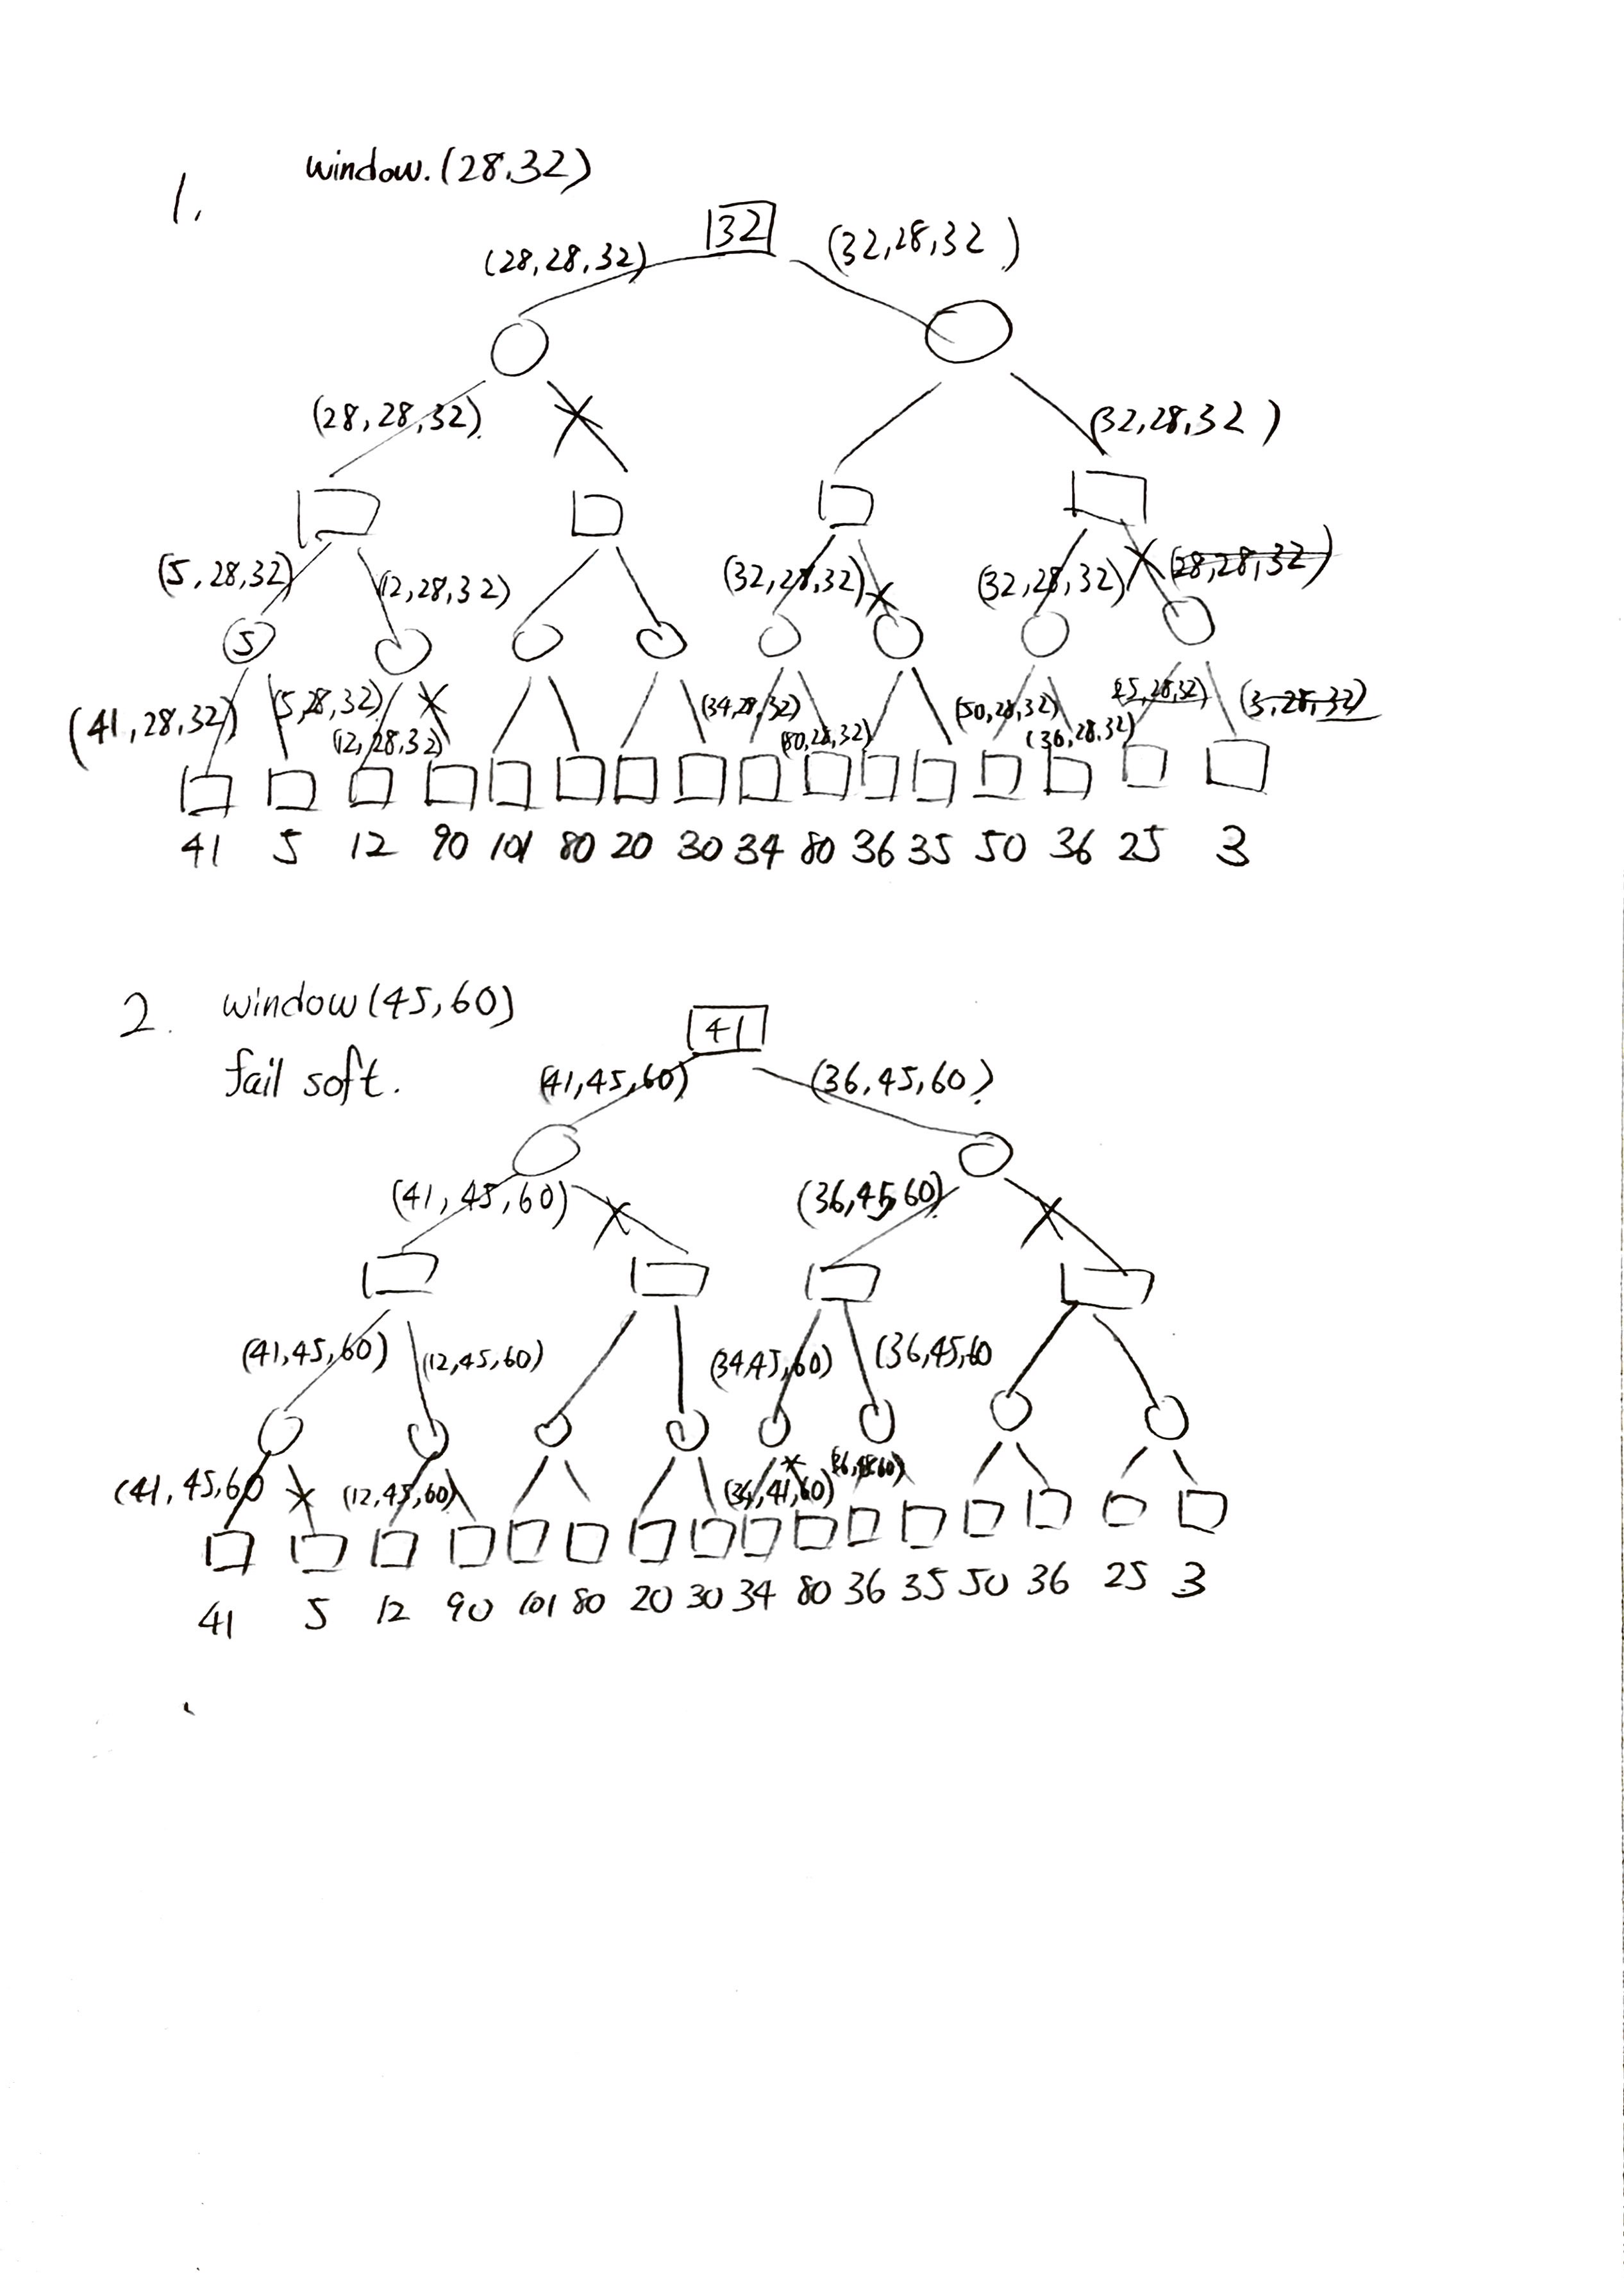 1.
window.(28,32)
32
(28,28,32)
(32,28,32)
(28,28,32)
(32,28,32)
(5,28,32)
(12,28,32)
(32,28,32)
(32,28,32)
(28,28,32)
5
(41,28,32)
(5,28,32)
(12,28,32)
(34,28,32)
(80,28,32)
(50,28,32)
(36,28,32)
41 5 12 90 101 80 20 30 34 80 36 35 50 36 25 3
2. window(45,60)
fail soft.
41
(41,45,60)
(36,45,60)
(41,45,60)
(36,45,60)
(41,45,60)
(12,45,60)
(34,45,60)
(36,45,60
(41,45,60
(12,45,60)
41 5 12 90 101 80 20 30 34 80 36 35 50 36 25 3